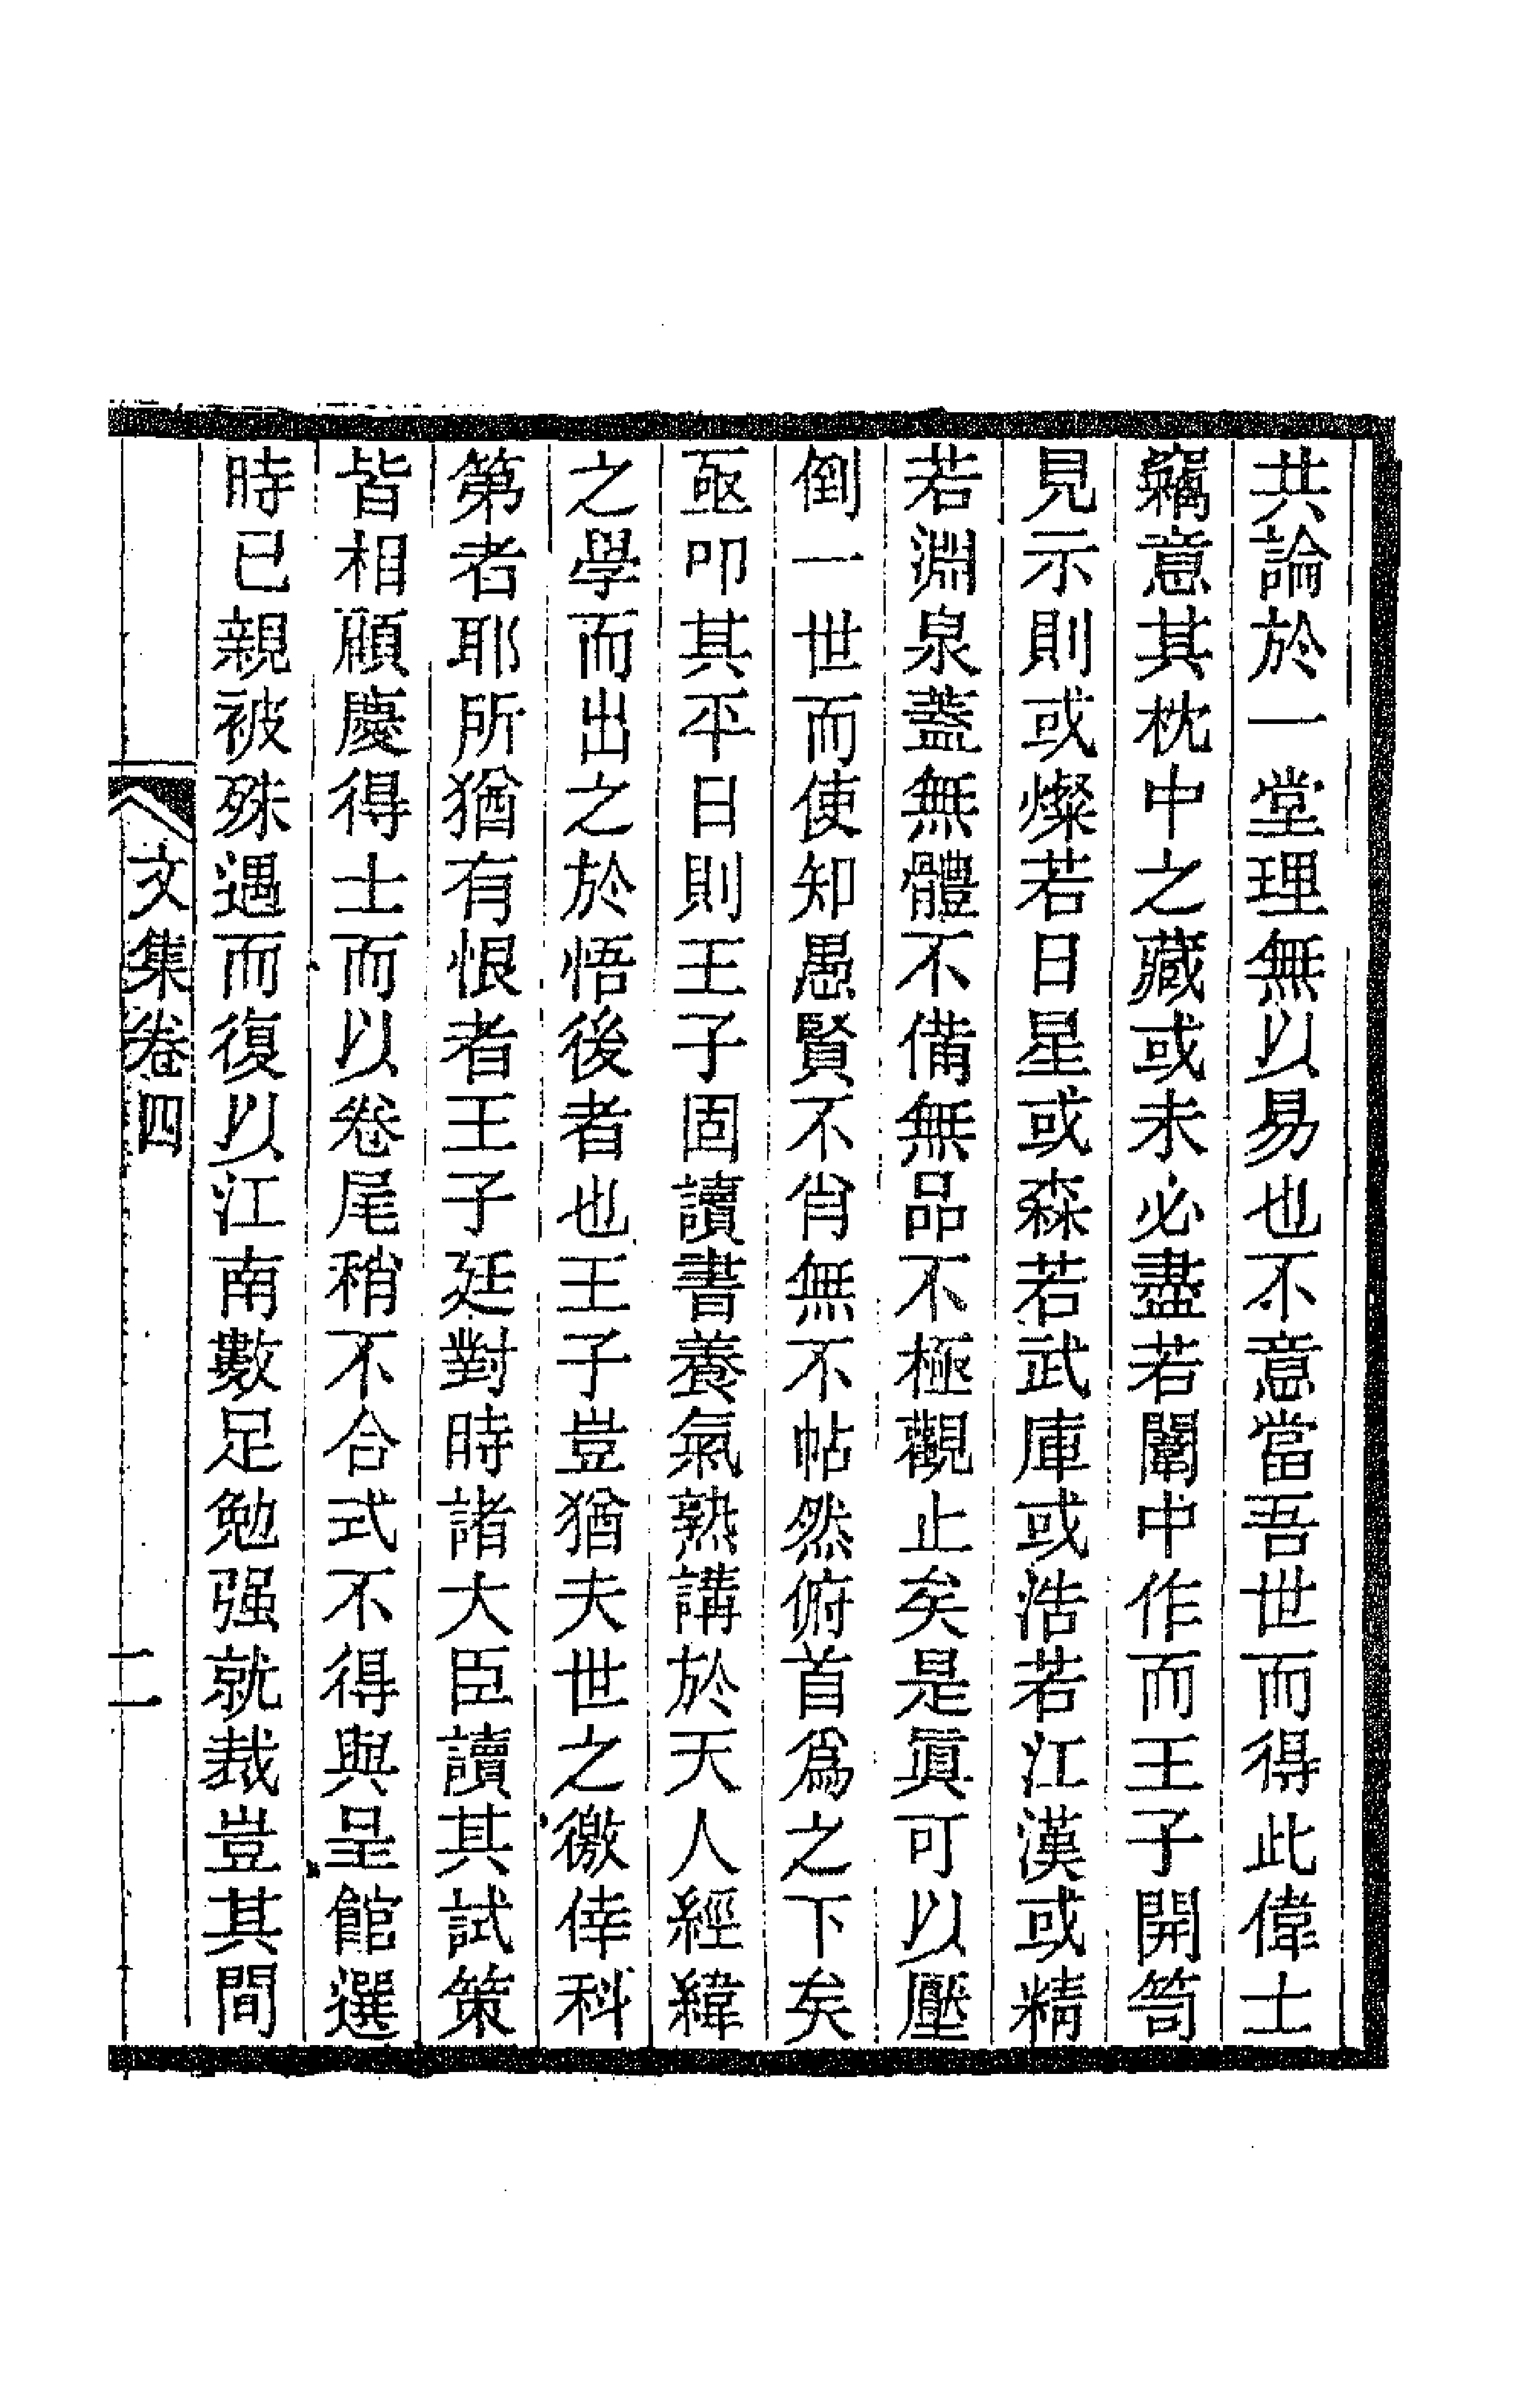 共論於一堂理無以易也不意當吾世而得此偉士
竊意其枕中之藏或未必盡若闈中作而王子開笥
見示則或燦若日星或森若武庫或浩若江漢或精
若淵泉蓋無體不備無品不極觀止矣是眞可以壓
倒一世而使知愚賢不肖無不帖然俯首爲之下矣
亟叩其平日則王子固讀書養氣熟講於天人經緯
之學而出之於悟後者也王子豈猶夫世之徼倖科
第者耶所猶有恨者王子廷對時諸大臣讀其試策
皆相顧慶得士而以卷尾稍不合式不得與呈館選
時已親被殊遇而復以江南數足勉强就裁豈其間
文集卷四
二